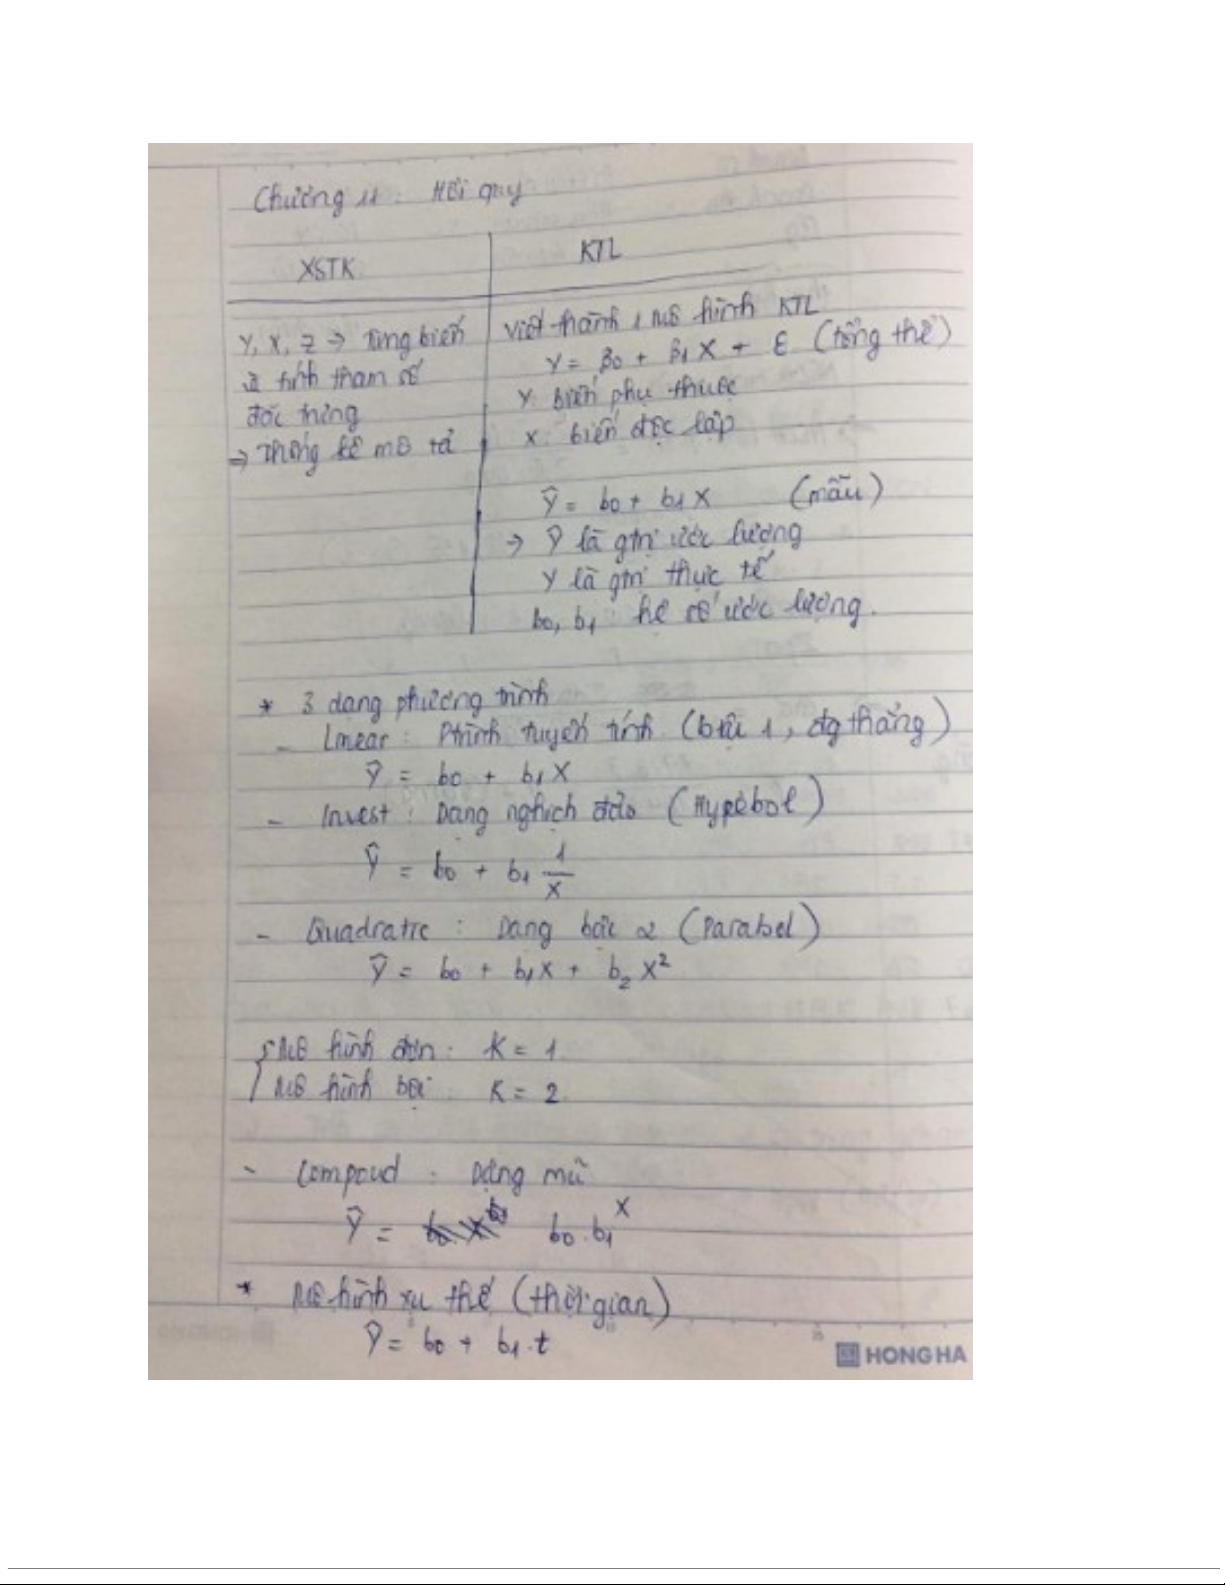 Chương 11 : Hồi quy
XSTK
KTL
Y, X, Z → Từng biến
và tính tham số
đặc trưng
⇒ Thống kê mô tả
Viết thành 1 Mô hình KTL
Y = β0 + β1 X + ε (tổng thể)
Y: biến phụ thuộc
X: biến độc lập
Ŷ = b0 + b1 X (mẫu)
→ Ŷ là gtrị ước lượng
Y là gtrị thực tế
b0, b1 : hệ số ước lượng.
* 3 dạng phương trình
- Linear : Ptrình tuyến tính (bậc 1, đg thẳng)
Ŷ = b0 + b1 X
- Invest : Dạng nghịch đảo (Hypebol)
Ŷ = b0 + b1 1/X
- Quadratic : Dạng bậc 2 (Parabol)
Ŷ = b0 + b1X + b2 X²
{ Mô hình đơn : K = 1
Mô hình bội : K = 2
- Compoud : Dạng mũ
Ŷ = b0.b1^X
* Mô hình xu thế (thời gian)
Ŷ = b0 + b1.t
HONG HA